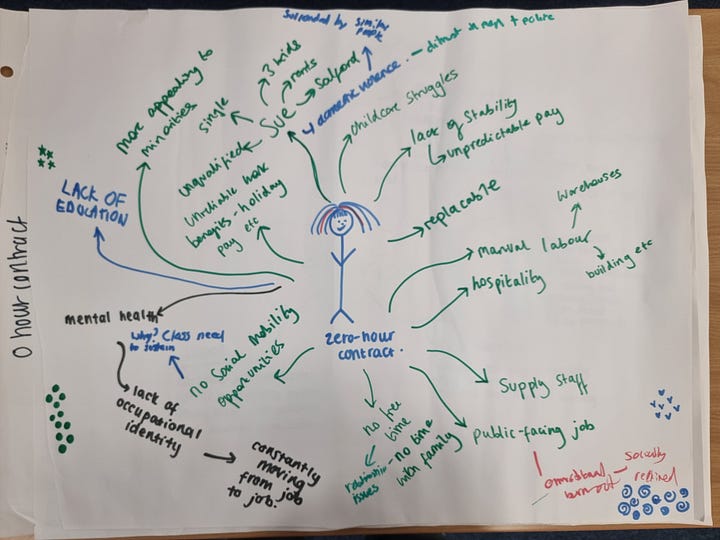 Surrounded by similar
people
→ 3 kids
→ rents
→ Salford
Sue
single
unqualified
↳ domestic violence. – distrust in men + police
more appealing to
minorities
childcare struggles
lack of stability
↳ unpredictable pay
unreliable work
benefits - holiday
pay etc
LACK OF
EDUCATION
replacable
warehouses
manual labour
building etc
hospitality
0 hour contract
zero-hour
contract.
mental health
why? Class need
to sustain
no social mobility
opportunities
lack of
occupational
identity
constantly
moving
from job
to job.
no free
time
relationship
issues
- no time
with family
Supply staff
public-facing job
burn out
socially